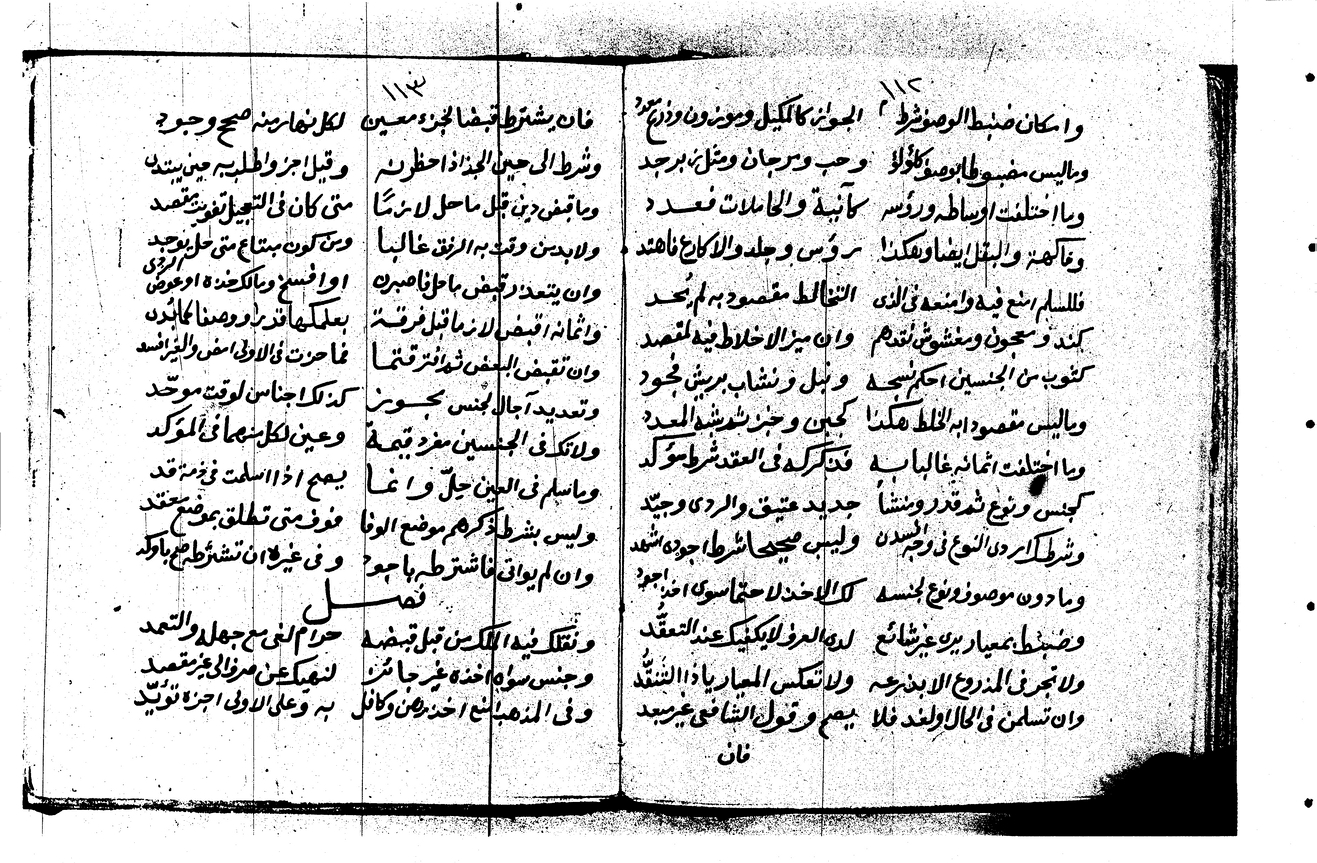 ١١٢
وامكان ضبط الوصف شرط الجواز كالمكيل وموزون وذرع
وما ليس مضبوطا بوصف كلؤلؤ وحب ومرجان ومثل زبرجد
وما اختلفت اوساطه ورؤسه كآنية والحاملات فعدد
وفاكهة والبقل ايضا وهكذا رؤس وجلد والاكارع فاهتد
فللسلم امنع فيه وامنعه في الذى التخالط مقصود به لم يحد
كند ومعجون ومغشوش نقدهم وان ميز الاخلاط فيه لمقصد
كثوب من الجنسين احكم نسجه ونبل ونشاب بريش فجود
وما ليس مقصودا به الخلط هكذا كجبن وخبز شبه المعدد
وما اختلفت اثمانه غالبا به فذكركه في العقد شرط مؤكد
كجنس ونوع ثم قدر ومنشا جديد عتيق والردى وجيد
وشرطك اردى النوع في وجه وليس صحيحا شرط اجود
وما دون موصوف ونوع لجنسه لك الاخذ لا حتما سوى اخذ اجود
وضبط بمعيار يرى غير شائع لدى العرف لا يكفيك عند التعقد
ولا تجر في المذروع الا بذرعه ولا تعكس المعيار يا ذا التنقد
وان تسلمن في الحال او لغد فلا يصح وقول الشافعى غير مبعد
فان
١١٣
فان يشترط قبضا لجزء معين لكل نهار منه صحح وجود
وشرط الى حين الجذاذ احظرنه وقيل اجز واطلب به حين يبتدى
وما قبض دين قبل ما حل لازما متى كان في التعجيل تفويت مقصد
ولا بد من وقت به الرفق غالبا ومن كون مبتاع متى حل يوجد
وان يتعذر قبض ما حل فاصبرن او افسخ ومالك خذه او عوض الردى
واثمانه اقبض لازما قبل فرقة بعلمكها قدرا ووصفا
وان تقبض البعض ثم افترقتما فما حزت في الاولى امض والغير افسد
وتعديد آجال لجنس تجويز كذلك اجناس لوقت موحد
ولا تك في الجنسين مفرد قيمة وعين لكل منهما في المؤكد
وما سلم في العين حل وانما يصح اذا اسلمت في ذمة قد
وليس بشرط ذكرهم موضع الوفا فوف متى تطلق بموضع معقد
وان لم يواتى فاشترطه باجود وفى غيره ان تشترطه صح
فصل
ونقلك فيه الملك من قبل قبضه حرام لغى مع جهله والتعمد
وجنس سواه اخذه غير جائز لنهيك عن صرف الى غير مقصد
وفى المذهب امنع اخذ رهن وكافل به وعلى الاولى اجزه تؤيد